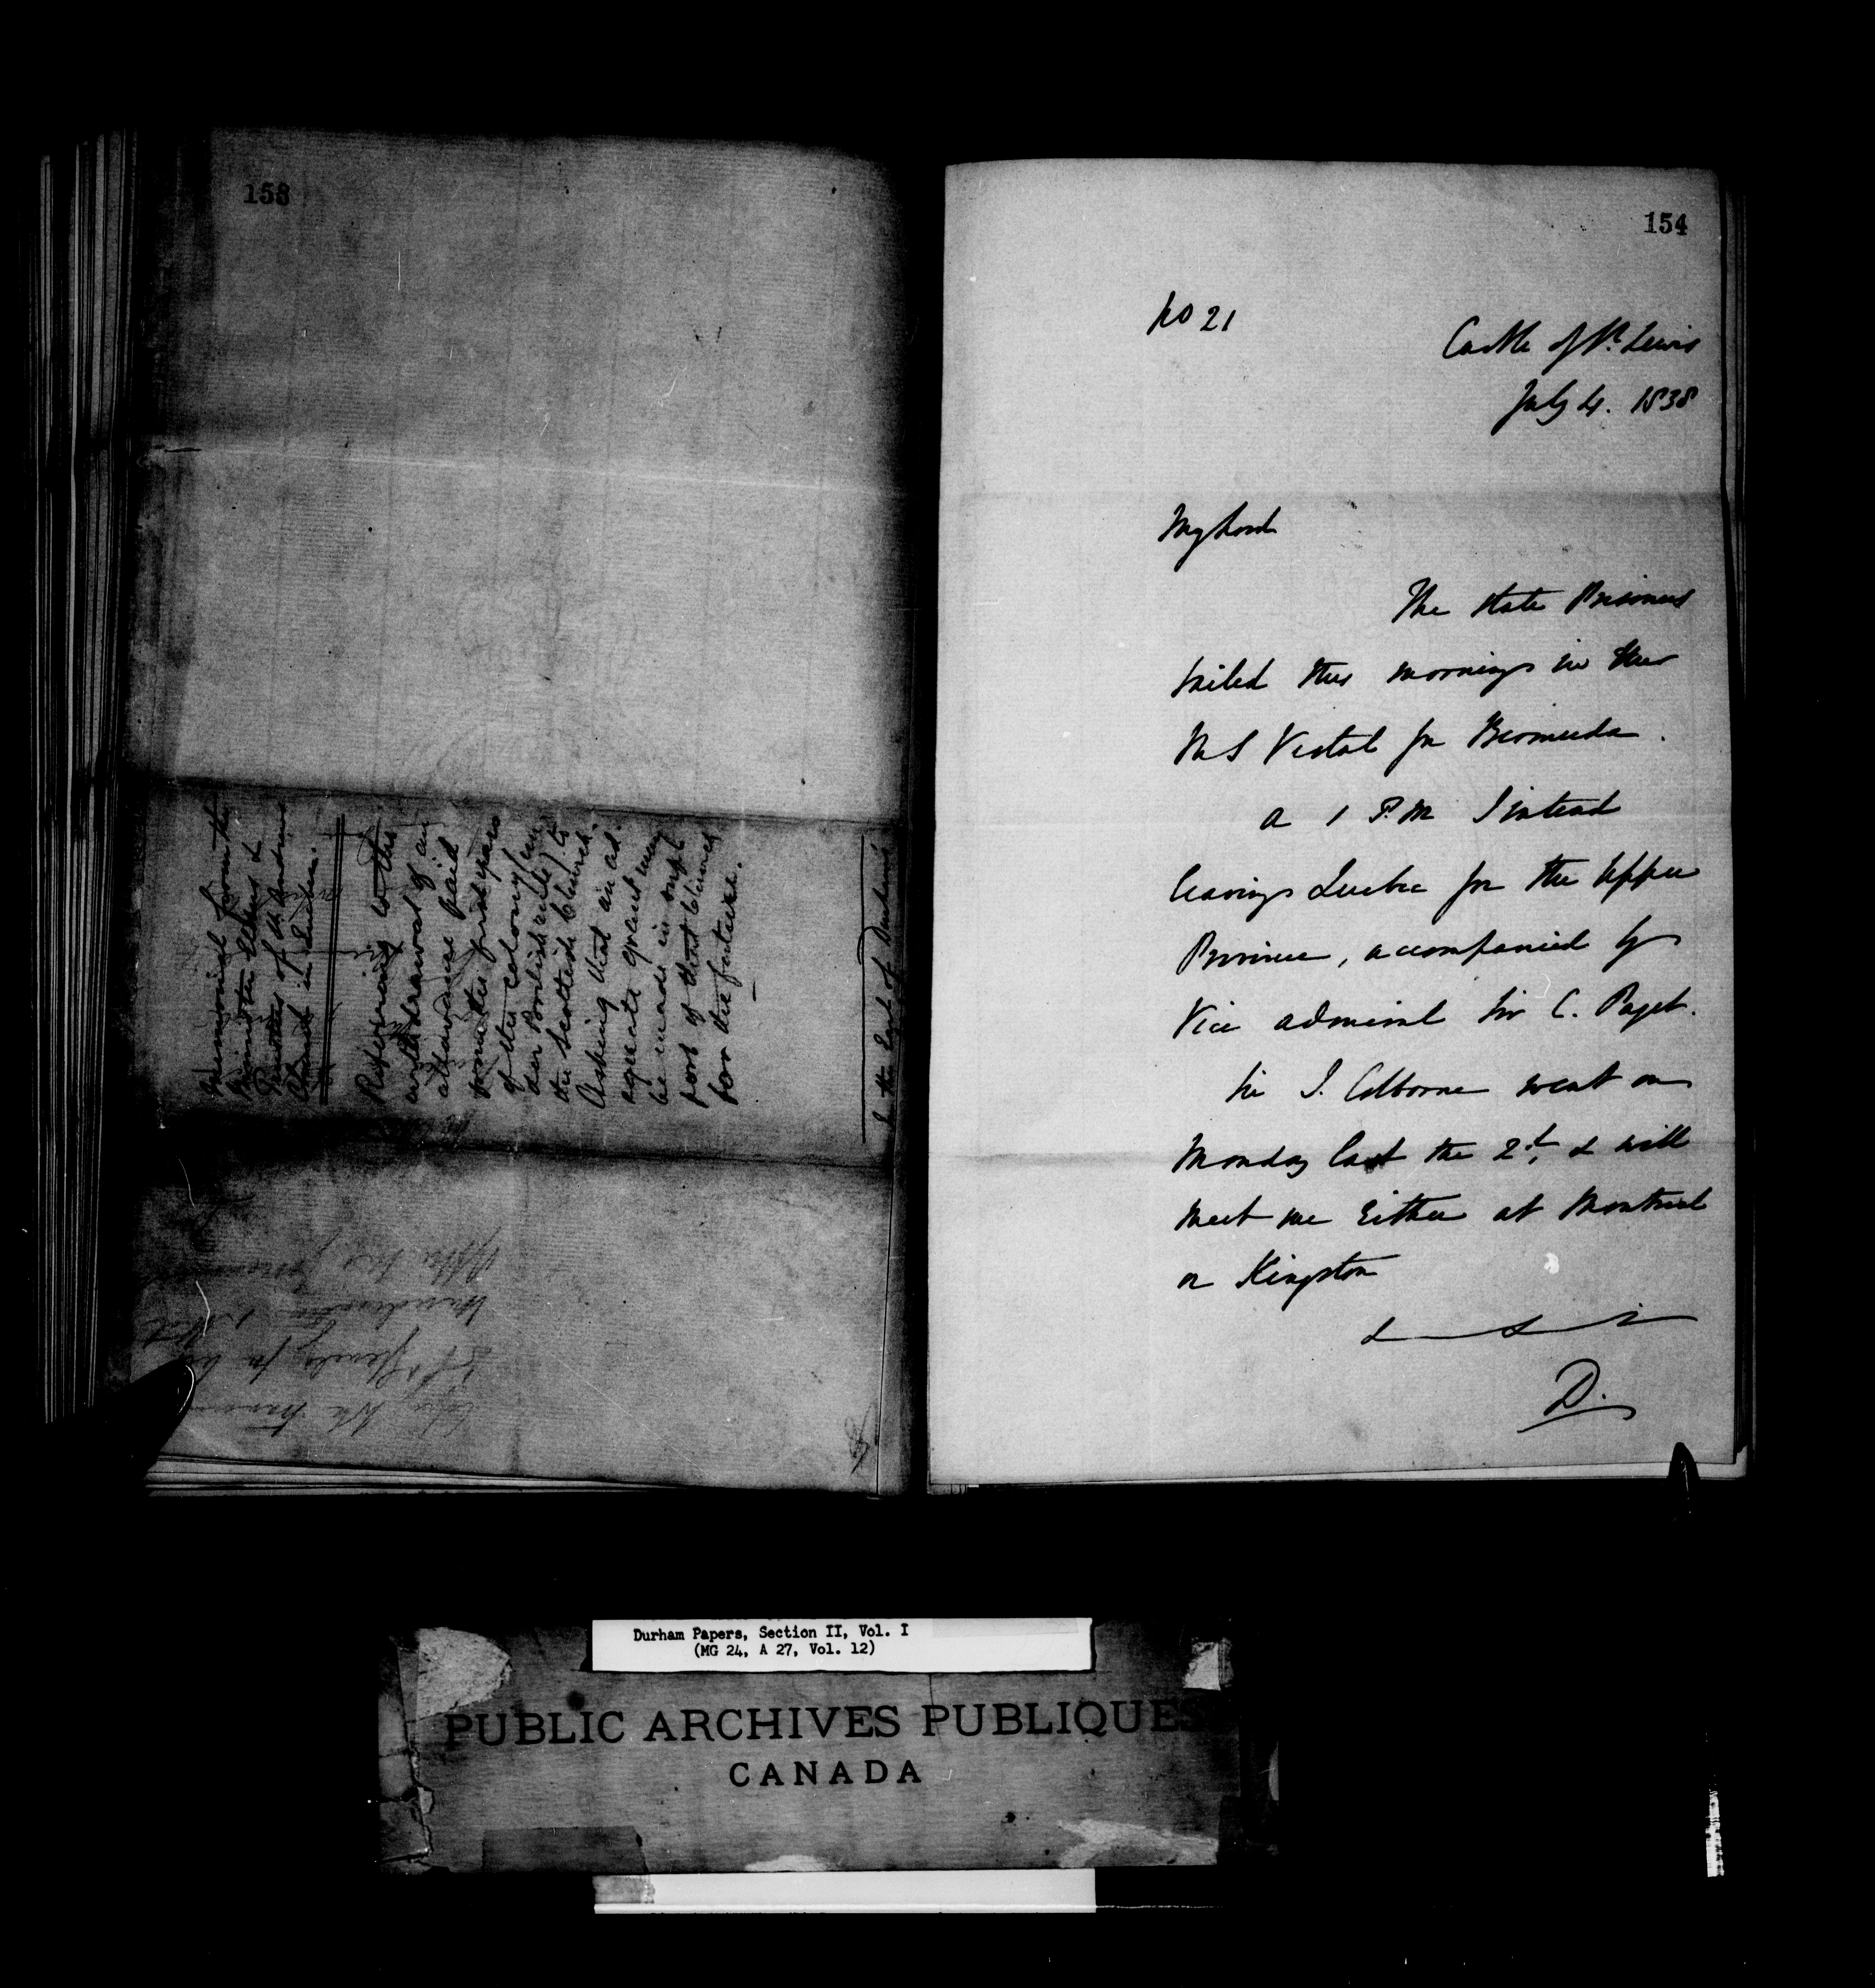 153
Memorial from the
Minister Elders &
Trustees of St Andrews
Church in Quebec.
Referring to the
withdrawal of an
allowance paid
from the first years
of the colony (un
der British rule) to
the Scottish Church.
Asking that an ad
equate grant may
be made in supt
port of that Church
for the future.
To the Earl of Durham
154
No 21
Castle of St. Lewis
July 4. 1838
My Lord
The State Prisoners
sailed this morning in Her
M S Vestal for Bermuda.
a 1 P.M I intend
leaving Quebec for the Upper
Province, accompanied by
Vice admiral Sir C. Paget.
Sir J. Colborne went on
Monday last the 2d, & will
meet me Either at Montreal
or Kingston
D.
Durham Papers, Section II, Vol. I
(MG 24, A 27, Vol. 12)
PUBLIC ARCHIVES PUBLIQUES
CANADA